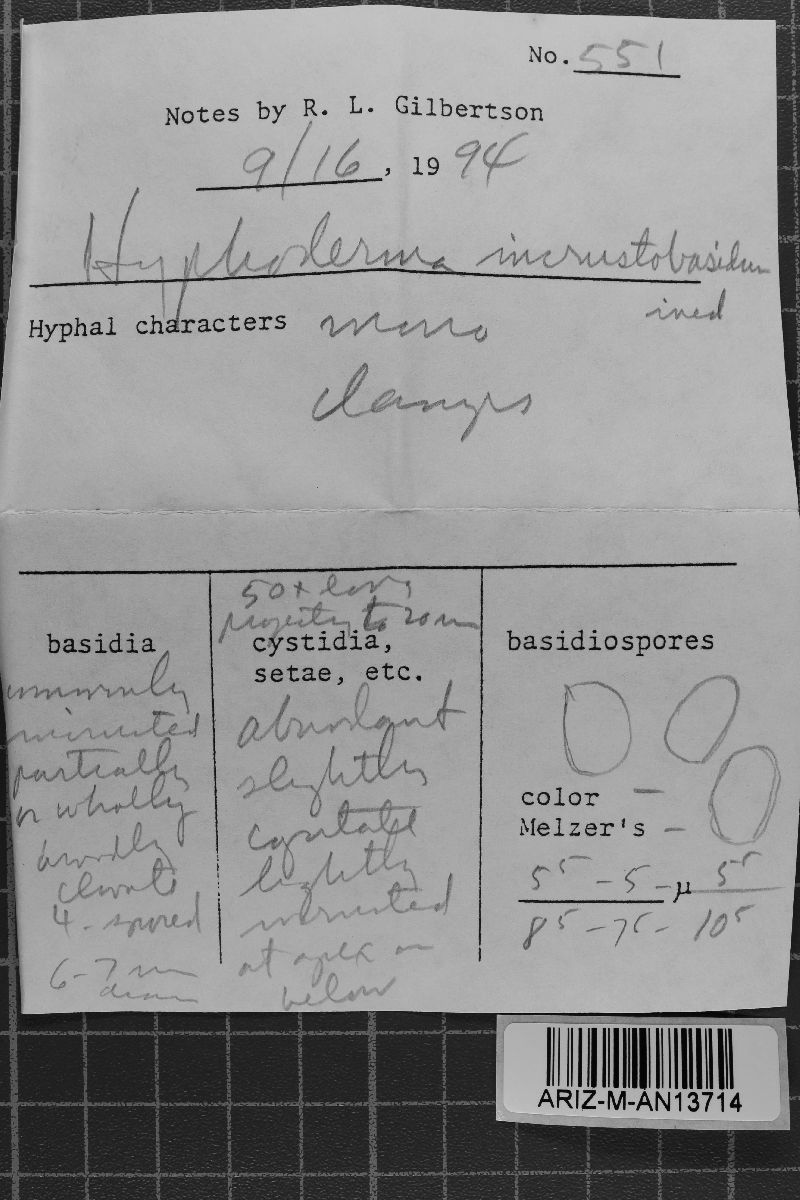 No. 551
Notes by R. L. Gilbertson
9/16, 1994
Hyphoderma incrustobasidium
ined
Hyphal characters mono
clamps
50+ long
projecting to 20 um
basidia
cystidia,
setae, etc.
basidiospores
commonly
incrusted
partially
or wholly
broadly
clavate
4-spored
6-7 um
diam
abundant
slightly
capitate
lightly
incrusted
at apex or
below
color —
Melzer's —
5⁵ - 5 - µ 5⁵
8⁵ - 7⁵ - 10⁵
ARIZ-M-AN13714